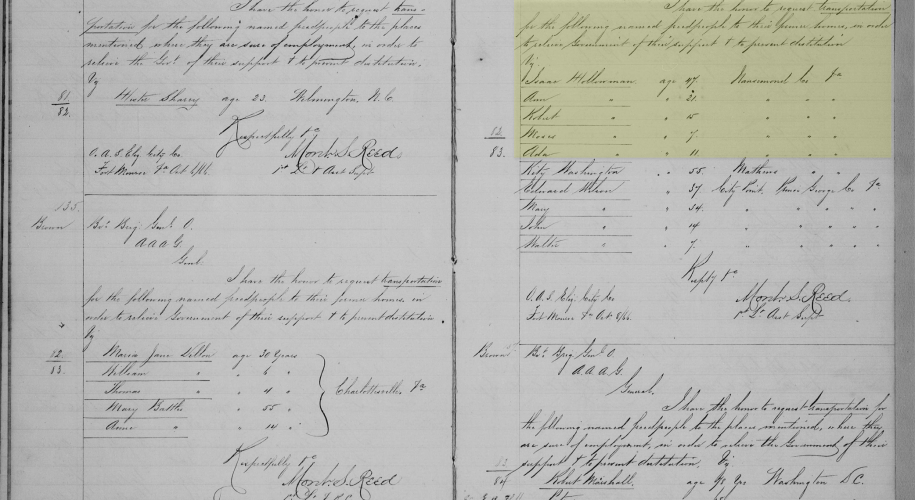 I have the honor to request trans-
portation for the following named freedpeople to the places
mentioned where they are sure of employment, in order to
relieve the Govt. of their support & to prevent destitution.
Viz
81/82. Hester Sharry age 23. Wilmington, N.C.
Respectfully &c
O.A.S. Eliz. City Co Mont. S. Reed
Fort Monroe Va Oct 6/66. 1st Lt & Asst Supt
135.
Brown Bvt Brig. Genl. O.
A A A G.
Genl.
I have the honor to request transportation
for the following named freedpeople to their former homes, in
order to relieve Government of their support & to prevent destitution
Viz
82/83. Maria Jane Dillon age 30 Years
William " " 6 "
Thomas " " 4 " Charlottesville Va
Mary Battles " 55 "
Anna " " 14 "
Respectfully &c
Mont. S. Reed
I have the honor to request transportation
for the following named freedpeople to their former homes, in order
to relieve Government of their support & to prevent destitution
Viz
Isaac Holloman age 47. Nansemond Co Va
Ann " " 21. " " "
Robert " " 15 " " "
82/83. Moses " " 7. " " "
Ada " " 11 " " "
Kity Washington " " 55. Mathews " "
Edward Wilson " 37. City Point, Prince George Co Va
Mary " " 34. " " " " "
John " " 14 " " " " "
Walter " " 7. " " " " "
Respfly &c
O.A.S. Eliz. City Co Mont. S. Reed
Fort Monroe Va Oct 6/66. 1st Lt Asst Supt
Brown Bvt Brig Genl. O.
A A A G.
General.
I have the honor to request transportation for
the following named freedpeople to the places mentioned, where they
are sure of employment, in order to relieve the Government of their
support & to prevent destitution. Viz
Robert Marshall. age Yrs Washington D.C.